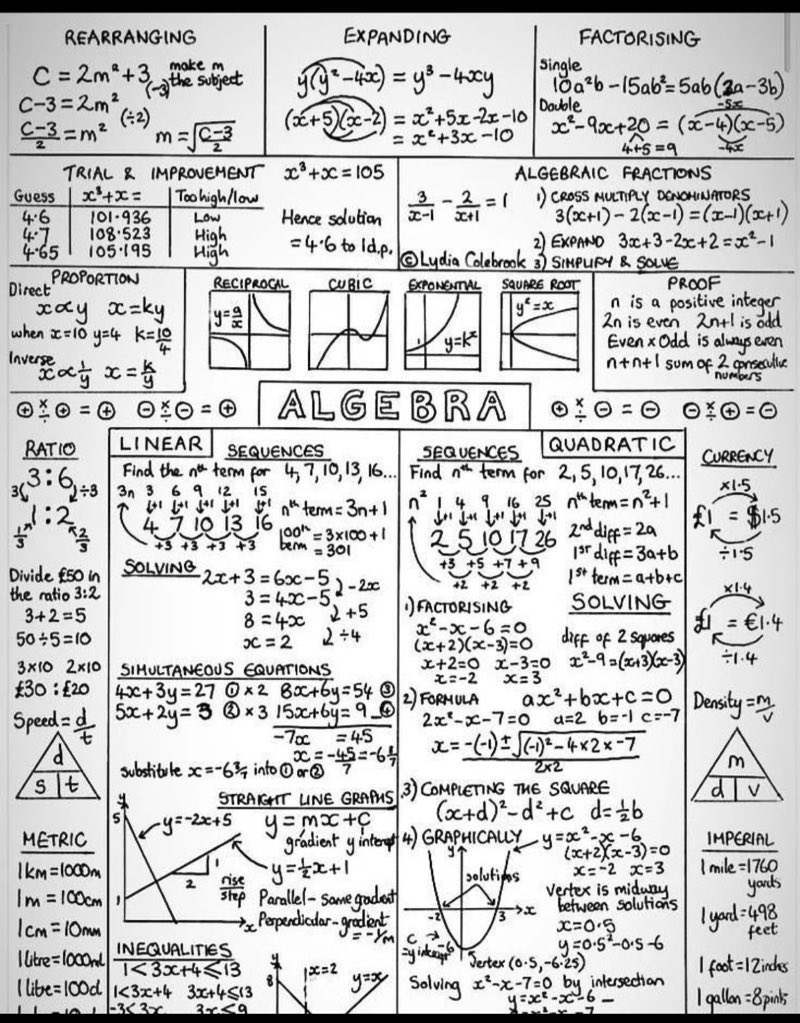 REARRANGING
C = 2m² + 3 make m
(-3) the subject
C-3 = 2m²
(÷2)
C-3/2 = m² m = √C-3/2
EXPANDING
y(y² - 4x) = y³ - 4xy
(x+5)(x-2) = x² + 5x - 2x - 10
= x² + 3x - 10
FACTORISING
Single
10a²b - 15ab² = 5ab(2a-3b)
Double
-5x
x² - 9x + 20 = (x-4)(x-5)
4+5=9 -4x
TRIAL & IMPROVEMENT x³ + x = 105
Guess x³+x= Too high/low
4.6 101.936 Low
4.7 108.523 High
4.65 105.195 High
Hence solution
= 4.6 to 1d.p.
ALGEBRAIC FRACTIONS
3/x-1 - 2/x+1 = 1
1) CROSS MULTIPLY DENOMINATORS
3(x+1) - 2(x-1) = (x-1)(x+1)
2) EXPAND 3x+3-2x+2 = x²-1
3) SIMPLIFY & SOLVE
©Lydia Colebrook
PROPORTION
Direct
x∝y x=ky
when x=10 y=4 k=10/4
Inverse
x∝1/y x=k/y
RECIPROCAL
y=a/x
CUBIC
EXPONENTIAL
y=kˣ
SQUARE ROOT
y²=x
PROOF
n is a positive integer
2n is even 2n+1 is odd
Even x Odd is always even
n+n+1 sum of 2 consecutive
numbers
⊕ ×/÷ ⊕ = ⊕ ⊖ ×/÷ ⊖ = ⊕
ALGEBRA
⊕ ×/÷ ⊖ = ⊖ ⊖ ×/÷ ⊕ = ⊖
RATIO
3:6
3( )÷3
1:2
1/3 2/3
Divide £50 in
the ratio 3:2
3+2=5
50÷5=10
3x10 2x10
£30 : £20
Speed = d/t
d
s t
METRIC
1km=1000m
1m=100cm
1cm=10mm
1litre=1000ml
1litre=100cl
LINEAR
SEQUENCES
Find the nth term for 4, 7, 10, 13, 16...
3n 3 6 9 12 15
↓+1 ↓+1 ↓+1 ↓+1 ↓+1
nth term = 3n+1
4 7 10 13 16
+3 +3 +3 +3
100th term = 3x100+1
= 301
SOLVING
2x+3 = 6x-5
-2x
3 = 4x-5
+5
8 = 4x
÷4
x = 2
SIMULTANEOUS EQUATIONS
4x+3y=27 ① x2 8x+6y=54 ③
5x+2y=3 ② x3 15x+6y=9 ④
-7x = 45
x = -45/7 = -6 3/7
substitute x=-6 3/7 into ① or ②
STRAIGHT LINE GRAPHS
y
5
y=-2x+5
y=mx+c
gradient y intercept
y=½x+1
1
2
rise
step
1
x
Parallel - same gradient
Perpendicular - gradient
= -1/m
INEQUALITIES
1<3x+4≤13
1<3x+4 3x+4≤13
-3<3x 3x≤9
y
8
x=2
y=x
QUADRATIC
SEQUENCES
Find nth term for 2, 5, 10, 17, 26...
n² 1 4 9 16 25
↓+1 ↓+1 ↓+1 ↓+1 ↓+1
nth term = n²+1
2 5 10 17 26
+3 +5 +7 +9
+2 +2 +2
2nd diff = 2a
1st diff = 3a+b
1st term = a+b+c
SOLVING
1) FACTORISING
x²-x-6=0
(x+2)(x-3)=0
x+2=0 x-3=0
x=-2 x=3
diff of 2 squares
x²-9=(x+3)(x-3)
2) FORMULA ax²+bx+c=0
2x²-x-7=0 a=2 b=-1 c=-7
x = -(-1) ± √(-1)²-4x2x-7
2x2
3) COMPLETING THE SQUARE
(x+d)²-d²+c d=½b
4) GRAPHICALLY
y=x²-x-6
(x+2)(x-3)=0
x=-2 x=3
y
solutions
-2 3 x
Vertex is midway
between solutions
x=0.5
y=0.5²-0.5-6
c → -6
= y intercept
Vertex (0.5, -6.25)
Solving x²-x-7=0 by intersection
y=x²-x-6
CURRENCY
x1.5
£1 = $1.5
÷1.5
x1.4
£1 = €1.4
÷1.4
Density = m/v
m
d v
IMPERIAL
1 mile=1760
yards
1 yard=498
feet
1 foot=12 inches
1 gallon=8 pints